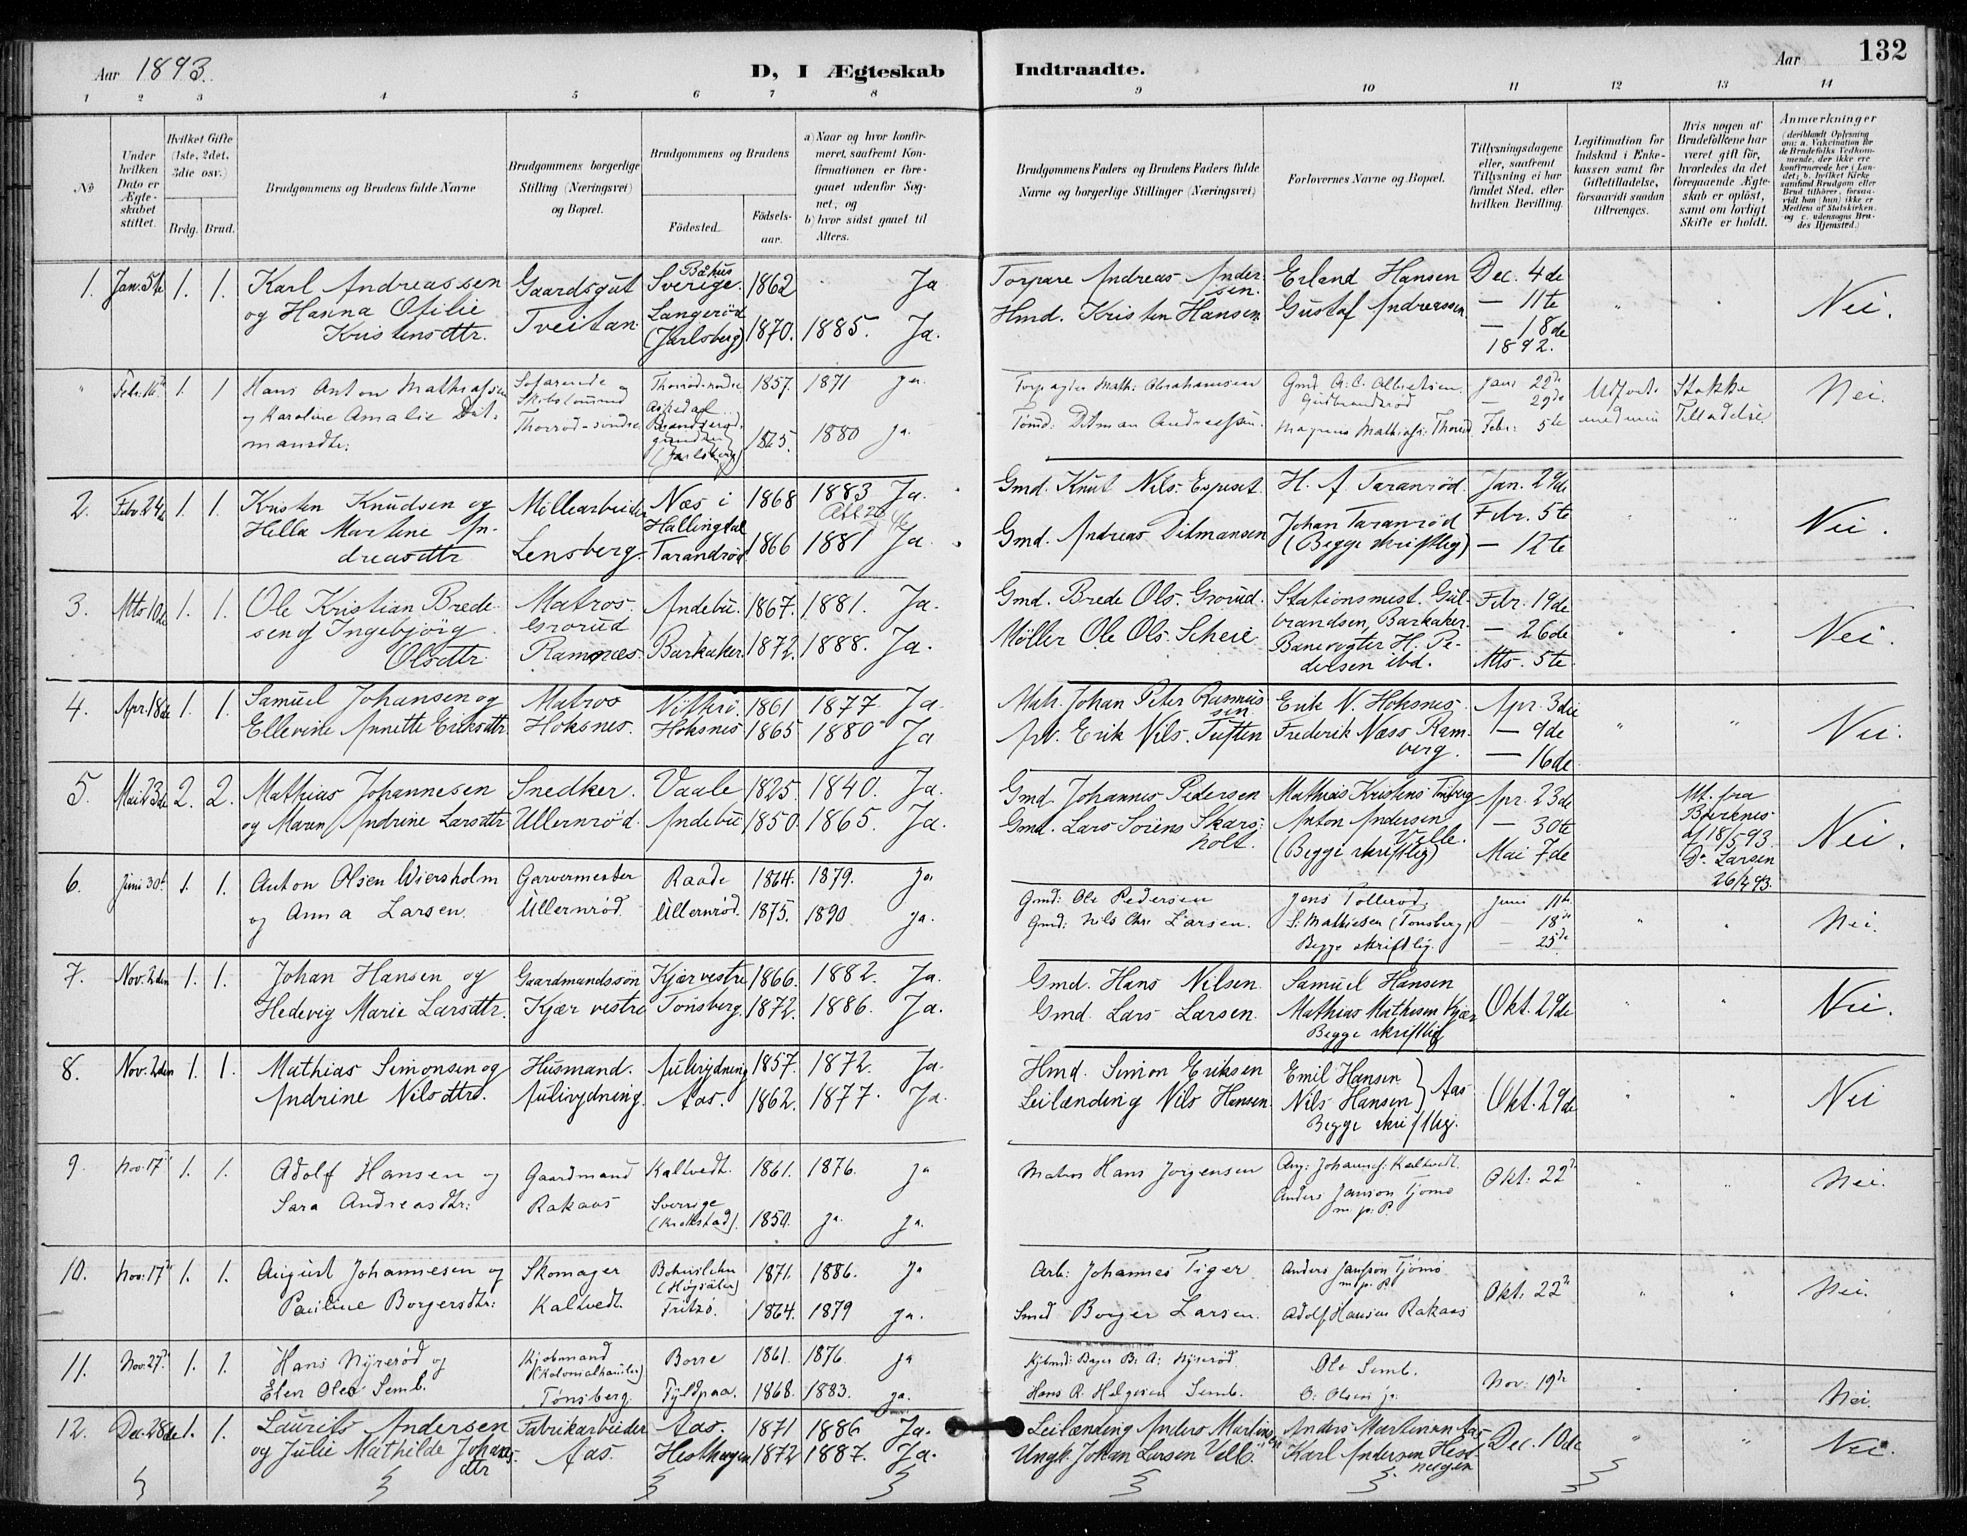 Aar 1893.
D, I Ægteskab Indtraadte.
Aar
132
1 2 3 4 5 6 7 8 9 10 11 12 13 14
No
Under hvilken Dato er Ægteskabet stiftet.
Hvilket Gifte (1ste, 2det, 3die osv.)
Brdg. Brud.
Brudgommens og Brudens fulde Navne
Brudgommens borgerlige Stilling (Næringsvei) og Bopæl.
Brudgommens og Brudens
Födested.
Födsels-aar.
a) Naar og hvor konfirmeret, saafremt Konfirmationen er foregaaet udenfor Sognet, og
b) hvor sidst gaaet til Alters.
Brudgommens Faders og Brudens Faders fulde Navne og borgerlige Stillinger (Næringsvei)
Forlovernes Navne og Bopæl.
Tillysningsdagene eller, saafremt Tillysning ei har fundet Sted, efter hvilken Bevilling.
Legitimation for Indskud i Enkekassen samt for Giftetilladelse, forsaavidt saadan tiltrænges.
Hvis nogen af Brudefolkene har været gift för, hvorledes da det foregaaende Ægteskab er oplöst, samt om lovligt Skifte er holdt.
Anmærkninger
1. Jan. 5te 1. 1. Karl Andreassen Gaardsgut Båhus Sverige. 1862 Ja Torpare Andreas Andersen. Erland Hansen Dec. 4de " " Nei.
og Hanna Otilie Kristensdtr. Tveitan Langerød (Jarlsberg) 1870. 1885. Ja. Hmd. Kristen Hansen. Gustaf Andreassen — 11te
— 18de
1892.
" Febr. 16de 1. 1 Hans Anton Mathiassen Söfarende og Thorrød-nedre 1857. 1871 ja. Math. Abrahamsen Gmd. A. C. Albretsen Gudbrandsrød Jani 22de Nei.
og Karoline Amalie Ditmansdtr. Skibstømmermand Thorrød-søndre (Jarlsberg) 1865. 1880 ja. Tömd. Ditman Andreassen. Magnus Mathiass: Thorød — 29de
Febr: 5te
Stokke Tilladelse
2. Febr. 24de 1. 1. Kristen Knudsen og Möllearbeider Næs i Hallingdal 1868 1883 Ja. Gmd. Knut Nils. Espeset. H. A. Taranrød. Jan. 29de " " Nei.
Hella Martine Andreasdtr Lensberg. Tarandrød 1866 1881 Ja. Gmd. Andreas Ditmansen Johan Taranrød (Begge skriftlig) Febr. 5te
— 12te
3. Mts 10de 1. 1. Ole Kristian Bredesen og Matros. Grorud Andebu. 1867. 1881. Ja. Gmd. Brede Ols. Grorud. Stationsmest. Gulbrandsen, Barkaker. Febr. 19de " " Nei.
Ingebjørg Olsdtr. Ramnæs Barkaker. 1872. 1888. Ja. Møller Ole Ols. Scheie Banevogter H. Pedersen ibd. — 26de
Mts. 5te
4. Apr. 18de 1. 1. Samuel Johansen og Matros Nøtterö. 1861 1877. Ja. Matr. Johan Peter Rasmussen Erik N. Hoksnes. Apr. 3die " " Nei.
Ellevine Annette Eriksdtr. Hoksnes. Hoksnes 1865 1880 Ja Arb. Erik Nils. Tuften Frederik Næss Ramberg. — 9de
— 16de
5. Mai 23de 2. 2. Mathias Johannesen Snedker. Vaale 1825. 1840. Ja. Gmd. Johannes Pedersen Mathias Kristens: Apr. 23de Att. fra Nei.
og Maren Andrine Larsdtr. Ullernrød. Andebu 1850. 1865. Ja. Gmd. Lars Sörens Skarsholt. Anton Andersen Velle. (Begge skriftlig) — 30te 18/5 93.
Mai 7de Dr. Larsen 26/4 93.
6. Juni 30te 1. 1. Anton Olsen Wiersholm Garvermester Raade 1864. 1879. Ja Gmd: Ole Pedersen Jens Tollerød. Juni 11te " " Nei.
og Anna Larsen. Ullernrød. Ullernrød. 1875. 1890 ja. Gmd: Nils Chr. Larsen. S. Mathiesen (Tønsberg) Begge skriftlig. — 18de
— 25de
7. Nov. 2den 1. 1. Johan Hansen og Gaardmandssön Kjær vestre 1866. 1882. Ja. Gmd. Hans Nilsen. Samuel Hansen Okt. 29de " " Nei.
Hedevig Marie Larsdtr. Kjær vestre Tonsberg. 1872. 1886. Ja. Gmd. Lars Larsen. Mathias Mathisen Kjær Begge skriftlig
8. Nov. 2den 1. 1. Mathias Simonsen og Husmand. Aulirydning 1857. 1872. Ja. Hmd. Simon Eriksen Emil Hansen Aas Okt. 29de " " Nei
Andrine Nilsdtr. Aulirydning. Aas. 1862. 1877. Ja. Leilænding Nils Hansen. Nils Hansen Begge skriftlig.
9. Nov. 17de 1. 1. Adolf Hansen og Gaardmand Kaltvedt. 1861. 1876. ja Matros Hans Jorgensen Aug. Johanness: Kaltvedt. Okt: 22de " " Nei.
Sara Andreasdtr: Rakaas Sverrige (Krokstad). 1850. ja. ja. Anders Janson Tjömö m. p. P.
10. Nov. 17de 1. 1. August Johannesen og Skomager Bohuslehn (Högsäter) 1871. 1886. Ja Arb: Johannes Tiger Anders Jansson Tjömö m. p. P. Okt: 22de " " Nei.
Pauline Borgersdtr: Kaltvedt. Fritzö. 1864. 1879 ja. Smed Borger Larsen. Adolf Hansen Rakaas
11. Nov. 27de 1. 1. Hans Nÿrerød og Kjøbmand (Kolonialhandler) Borre 1861. 1876. ja Kjbmd: B. A. Nÿrerød. Ole Semb. Nov: 19de " " Nei.
Elen Olea Semb. Tønsberg. Fyldpaa. 1868. 1883. ja. Hans R. Helgesen Semb. O. Olsen jr:
12. Dec. 28de 1. 1. Laurits Andersen Fabrikarbeider Aas. 1871 1886 Ja. Leilænding Anders Martinsen Anders Martinsen Aas Dec. 10de " " Nei.
og Julie Mathilde Johansdtr Aas. Hesthagen 1872 1887. Ja. Ungk. Johan Larsen Velle. Karl Andersen Hesthagen